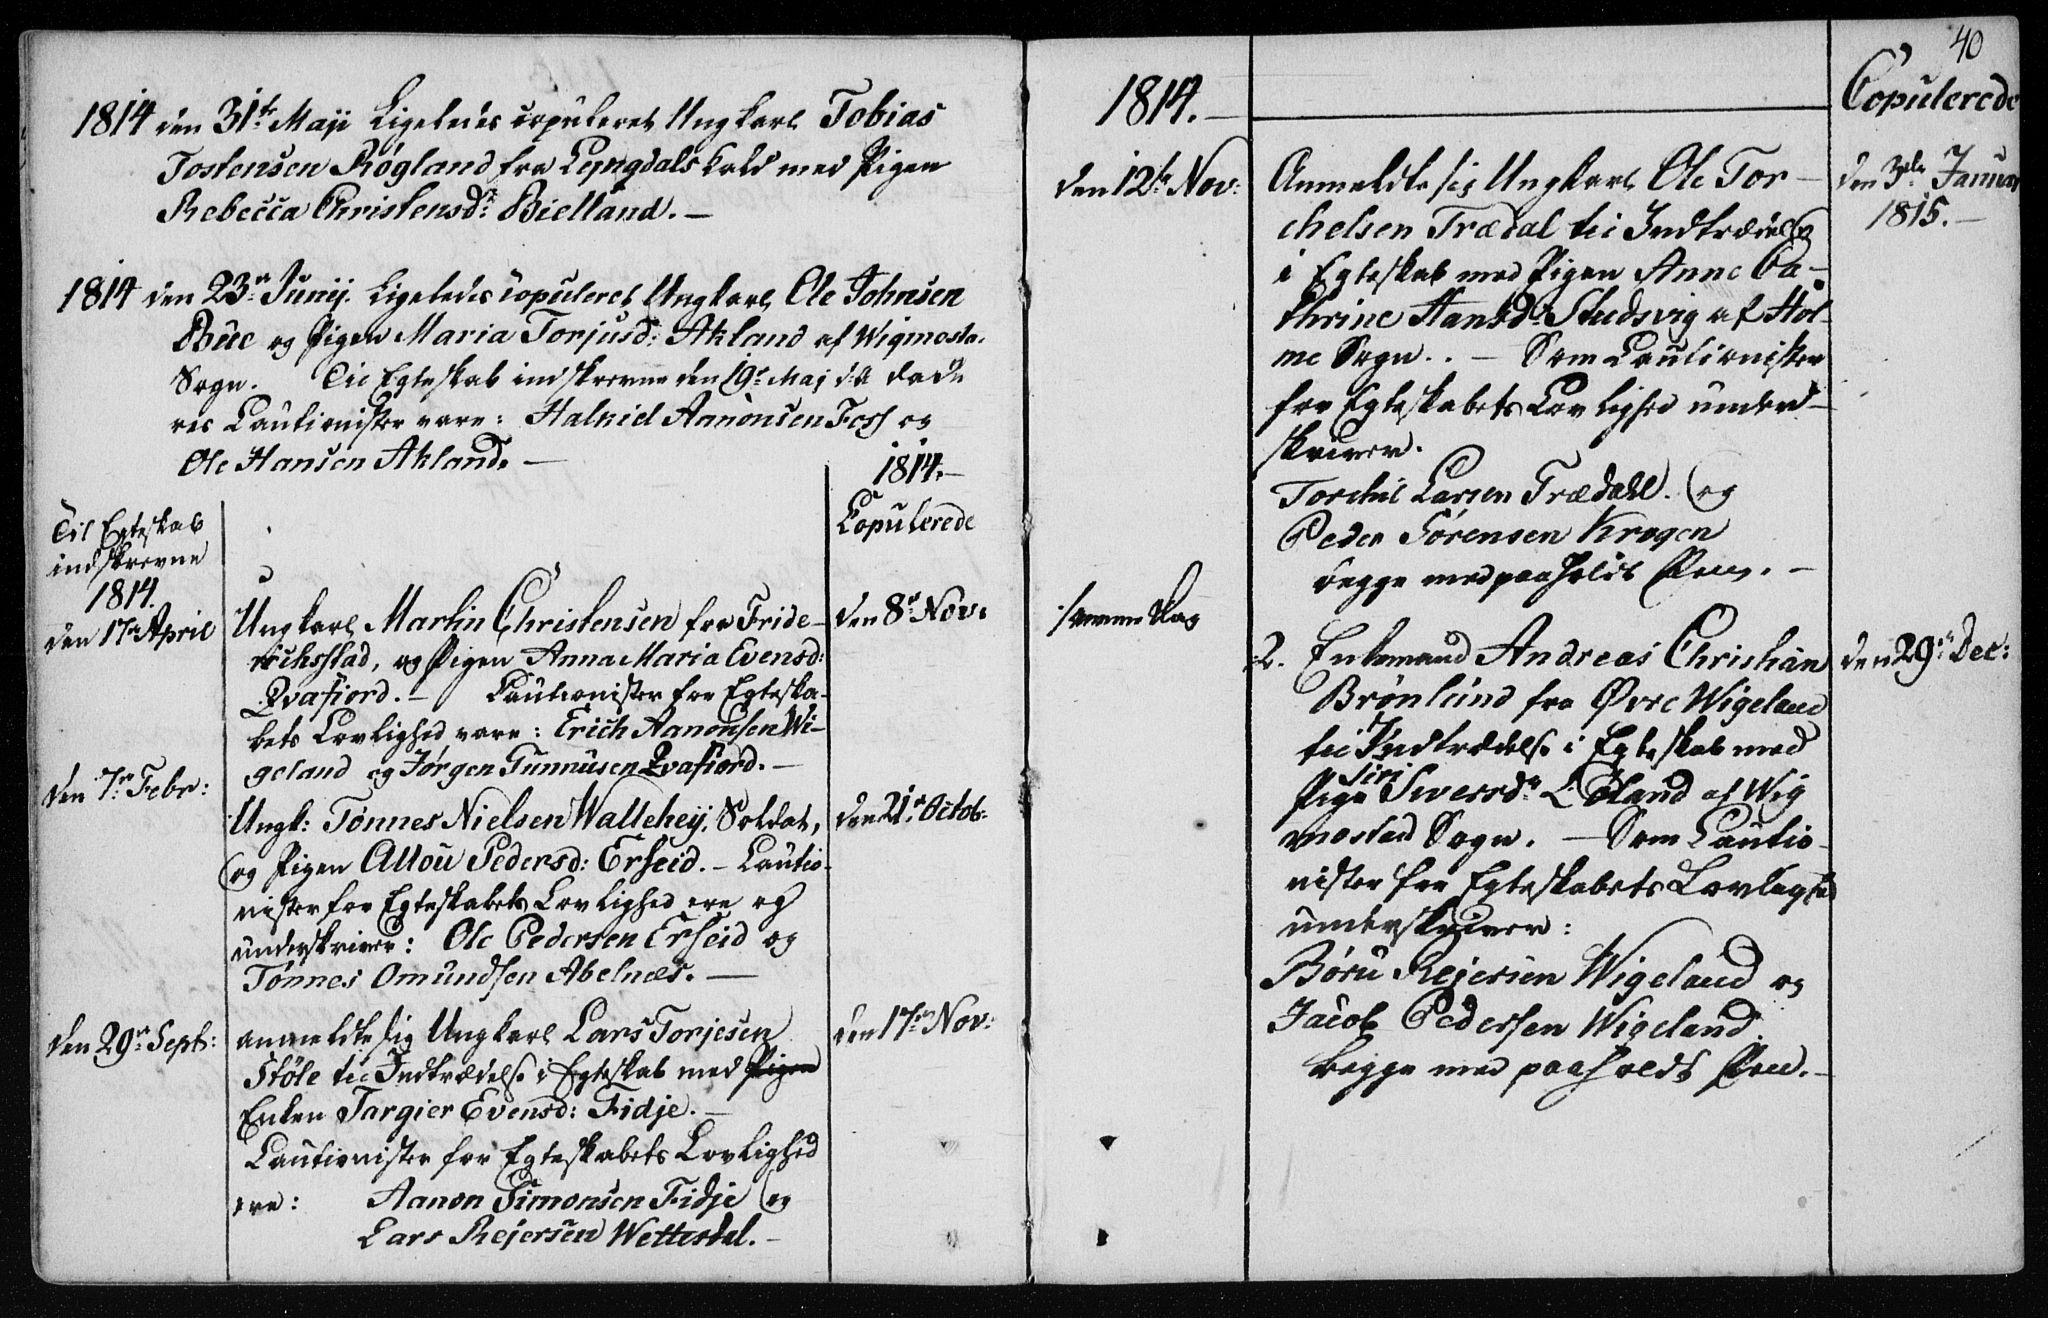 1814 den 31te Maji Ligeledes copuleret Ungkarl Tobias
Tostensen Røgland fra Lyngdals Kald med Pigen
Rebecca Christensdr Bielland. —
1814 den 23de Junij. Ligeledes copuleret Ungkarl Ole Johnsen
Bue og Pigen Maria Torjusd: Akland af Wigmosta.
Sogn. Til Egteskab indskrevne den 19de Maj d: A
res Cautionister vare: Halkiel Aanonsen Foss og
Ole Hansen Akland. —
Til Egteskab
indskrevne
1814.
1814.—
Copulerede
den 17de April
Ungkarl Martin Christensen fra Fride-
richsstad, og Pigen Anna Maria Evensd:
Qvafiord. — Cautionister for Egteska-
bets Lovlighed vare: Erich Aanonsen Wi-
geland og Jørgen Tunnusen Qvafiord. —
den 8de Nov:
den 7de Febr:
Ungk: Tønnes Nielsen Wallehej, Soldat,
og Pigen Allou Pedersd: Erseid. — Cautio-
nister for Egteskabets Lovlighed ere og
underskriver: Ole Pedersen Erseid og
Tønnes Omundsen Abelnæs. —
den 21de Octob:
den 29de Sept:
anmeldte sig Ungkarl Lars Torjesen
Støle til Indtrædelse i Egteskab med Pigen
Enken Targier Evensd: Fidje. —
Cautionister for Egteskabets Lovlighed
ere: Aanon Simonsen Fidje og
Lars Rejersen Wettedal. —
den 17de Nov:
40
1814. —
Copulerede
den 12te Nov:
Anmeldte sig Ungkarl Ole Tor-
chelsen Trædal til Indtrædelse
i Egteskab med Pigen Anne Ca-
thrine Hansdr Studsvig af Hol-
me Sogn. . — Som Cautionister
for Egteskabets Lovlighed under-
skriver.
Torchil Larsen Trædahl. og
Peder Sørensen Krogen
begge med paaholdt Pen. —
den 3die Januar
1815. —
samme Dag
2. Enkemand Andreas Christian
Brønlund fra Øvre Wigeland
til Indtrædelse i Egteskab med
Pige Siri Siversdr Løland af Wig
mostad Sogn. — Som Cautio-
nister for Egteskabets Lovlighed
underskriver:
Børu Rejersen Wigeland og
Jacob Pedersen Wigeland.
begge med paaholdt Pen. —
den 29de Dec: